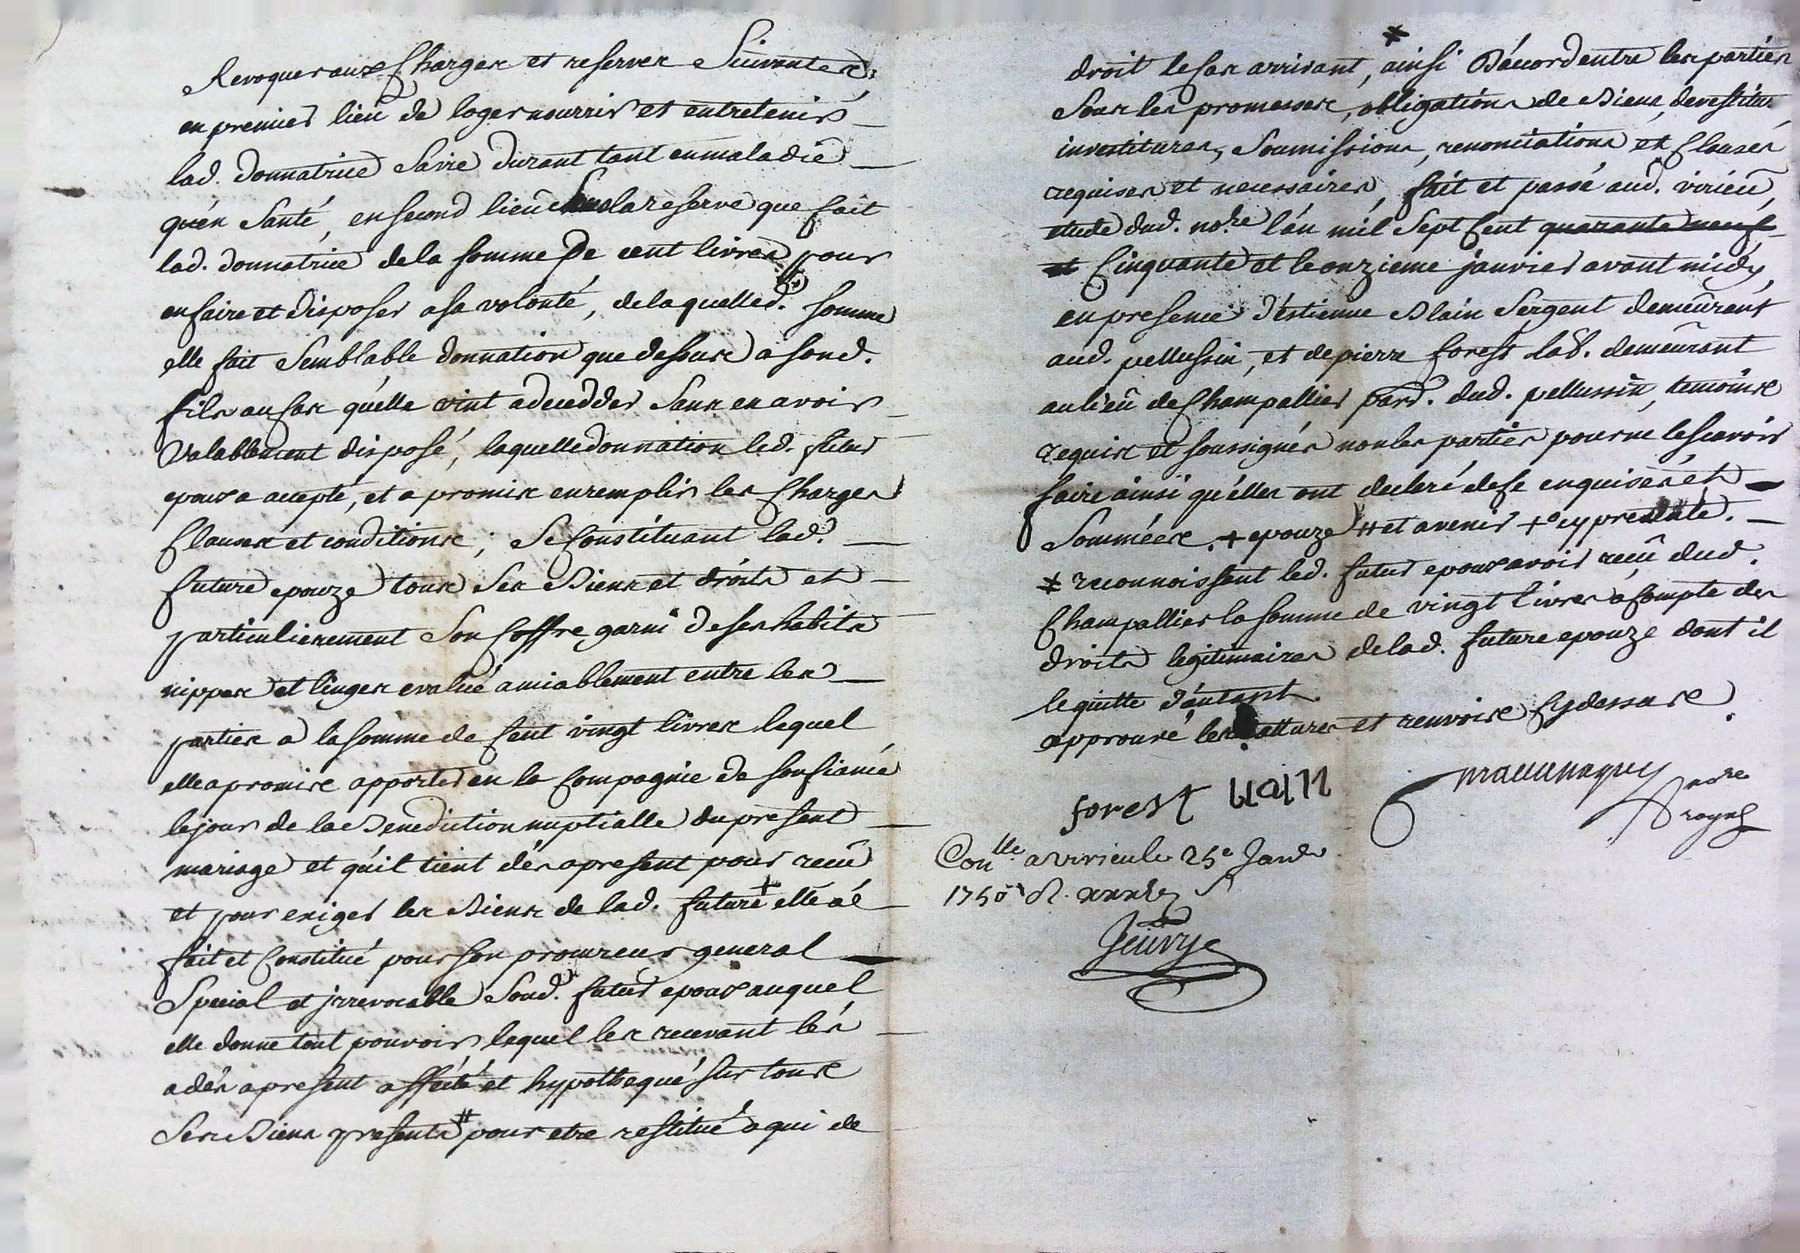 Revoquer aux Charges et reserves Suivantes,
en premier lieu de loger nourrir et entretenir
lad. donnatrice Savie durant tant en maladie
qu'en Santé, en second lieu sous la reserve que fait
lad. donnatrice de la somme de cent livres pour
en faire et disposer a sa volonté, de laquelle d. somme
elle fait Semblable donnation que dessus a sond.
fils au cas qu'elle vint a decedder Sans en avoir
Valablement disposé, laquelle donnation led. futur
epoux a accepté, et a promis en remplir les Charges
Clauses et conditions; Se Constituant lad.
future epouze tous Ses Biens et droits et
particulierement Son Coffre garni de ses habits
nippes et linges evalué amiablement entre les
parties a la somme de Cent vingt livres lequel
elle a promis apporter en la Compagnie de son fiancé
le jour de la Benediction nuptialle du present
mariage et qu'il tient dés apresent pour reçeu
et pour exiger les Biens de lad. future + elle a é
fait et Constitué pour son procureur general
Special et jrrevocable Sond. futur epoux auquel
elle donne tout pouvoir, lequel les recevant les
a dés apresent affecté et hypothequé sur tous
Ses Biens presents # pour etre restitué a qui de
droit le cas arrivant, * ainsi D'acord entre les parties
Sous les promesses, obligations de Biens, devestitur.
investitures, Soumissions, renonciations et Clauses
requises et necessaires, fait et passé aud. virieu,
etude dud. no.re l'an mil Sept Cent quarante neuf
et Cinquante et le onzieme janvier avant midy,
en presence d'estienne Blain Sergent demeurant
aud. pellussin, et de pierre forest lab. demeurant
au lieu de Champallier parr. dud. pellussin, temoins
requis et soussignés non les parties pour ne le sçavoir
faire ainsi qu'elles ont declaré de ce enquises et
Sommées. + epouze # et avenir +° cy presd
* reconnoissant led. futur epoux avoir reçu dud.
Champallier la somme de vingt livres a compte des
droits legitimaires de lad. future epouze dont il
le quitte d'autant
approuvé les rattures et renvois Cy dessus.
forest Blain
no.re
royal
Con.lle a virieu le 25e Janv.
1750